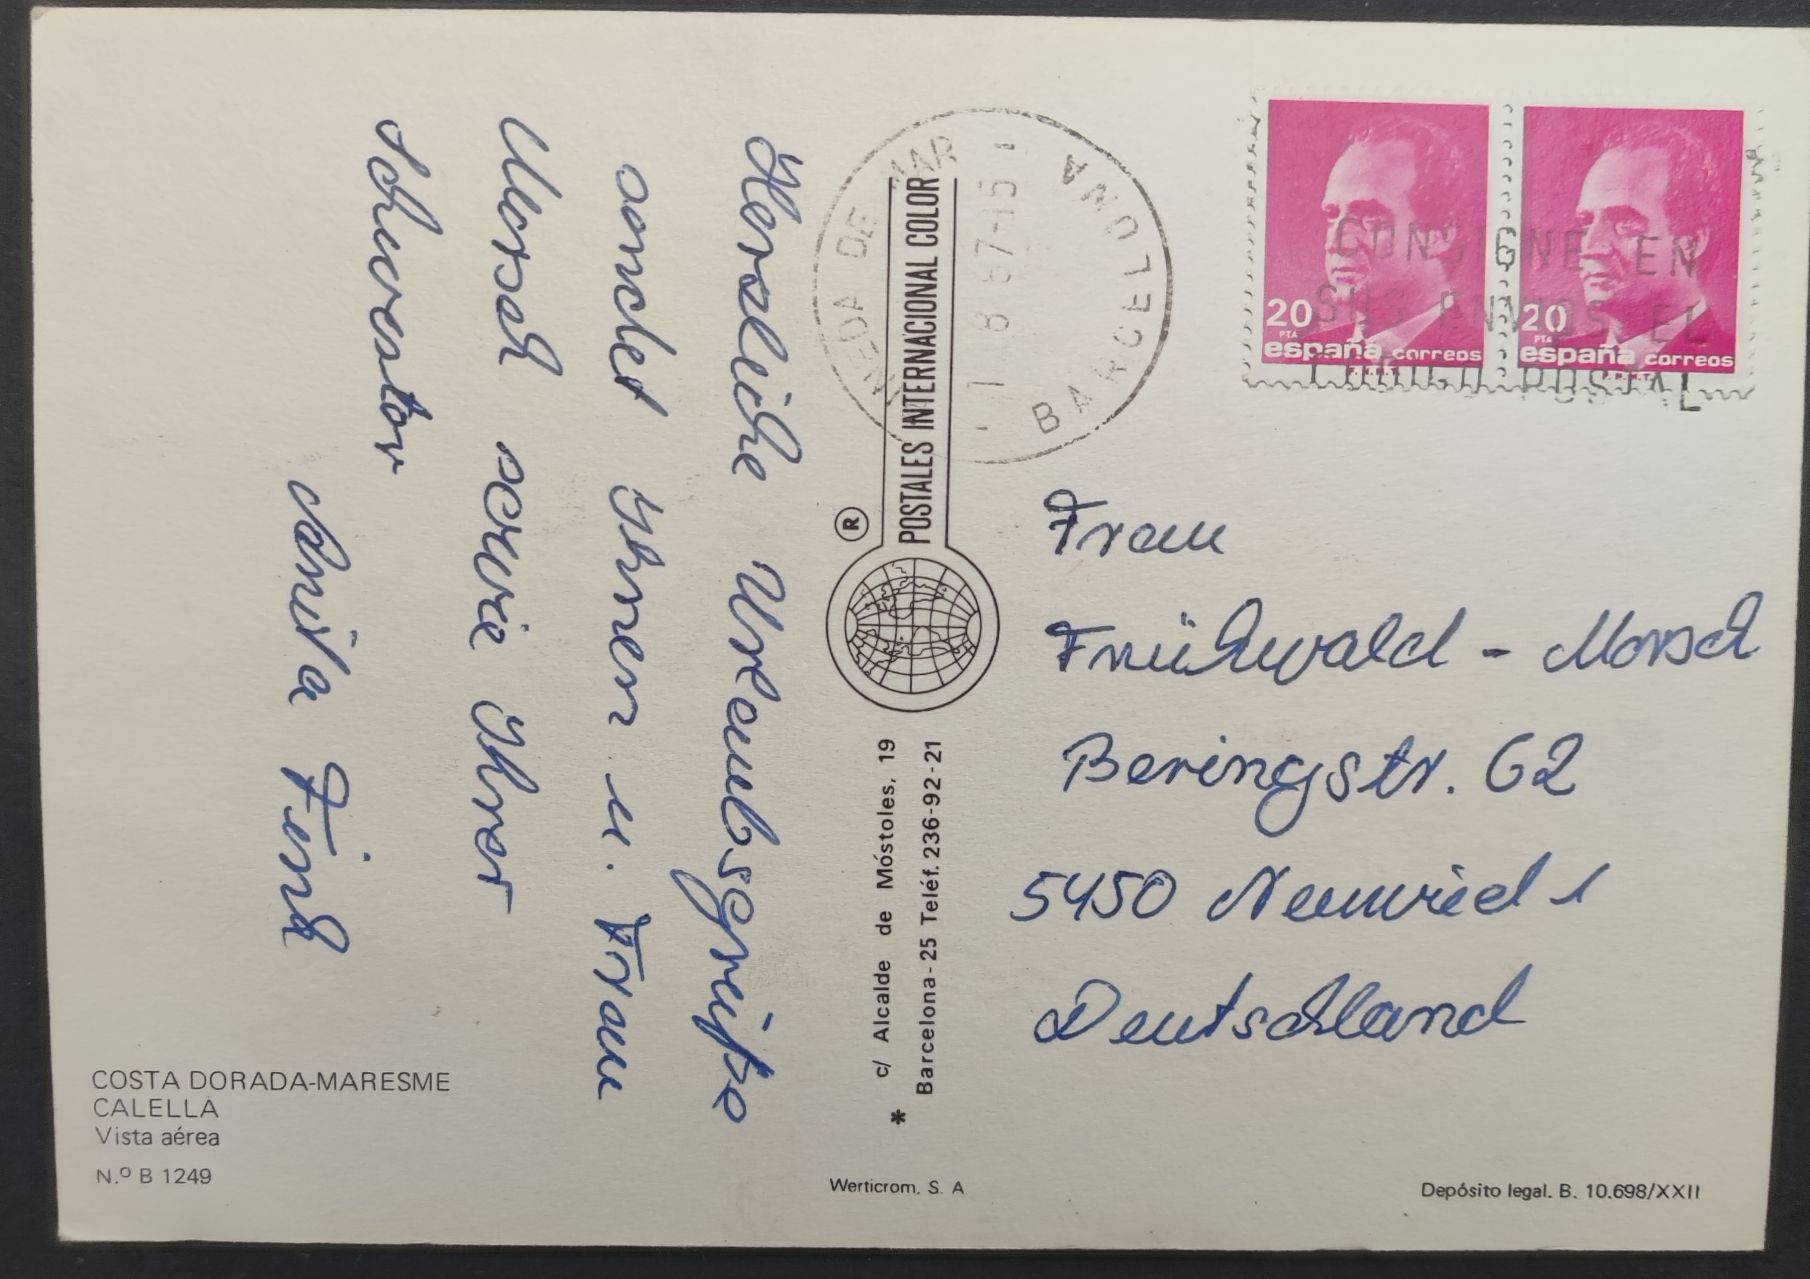 Herzliche Urlaubsgrüße
sendet Ihnen u. Frau
Morsch sowie Ihrer
Schwester
Anita Fink
COSTA DORADA-MARESME
CALELLA
Vista aérea
N.º B 1249
POSTALES INTERNACIONAL COLOR
®
* c/ Alcalde de Móstoles, 19
Barcelona-25 Teléf. 236-92-21
Werticrom, S. A
DE MAR
8 87-15
BARCELONA
20
PTA
españa correos
20
PTA
españa correos
CONSIGNE EN
SUS ENVIOS EL
POSTAL
Frau
Frühwald - Morsch
Beringstr. 62
5450 Neuwied 1
Deutschland
Depósito legal. B. 10.698/XXII